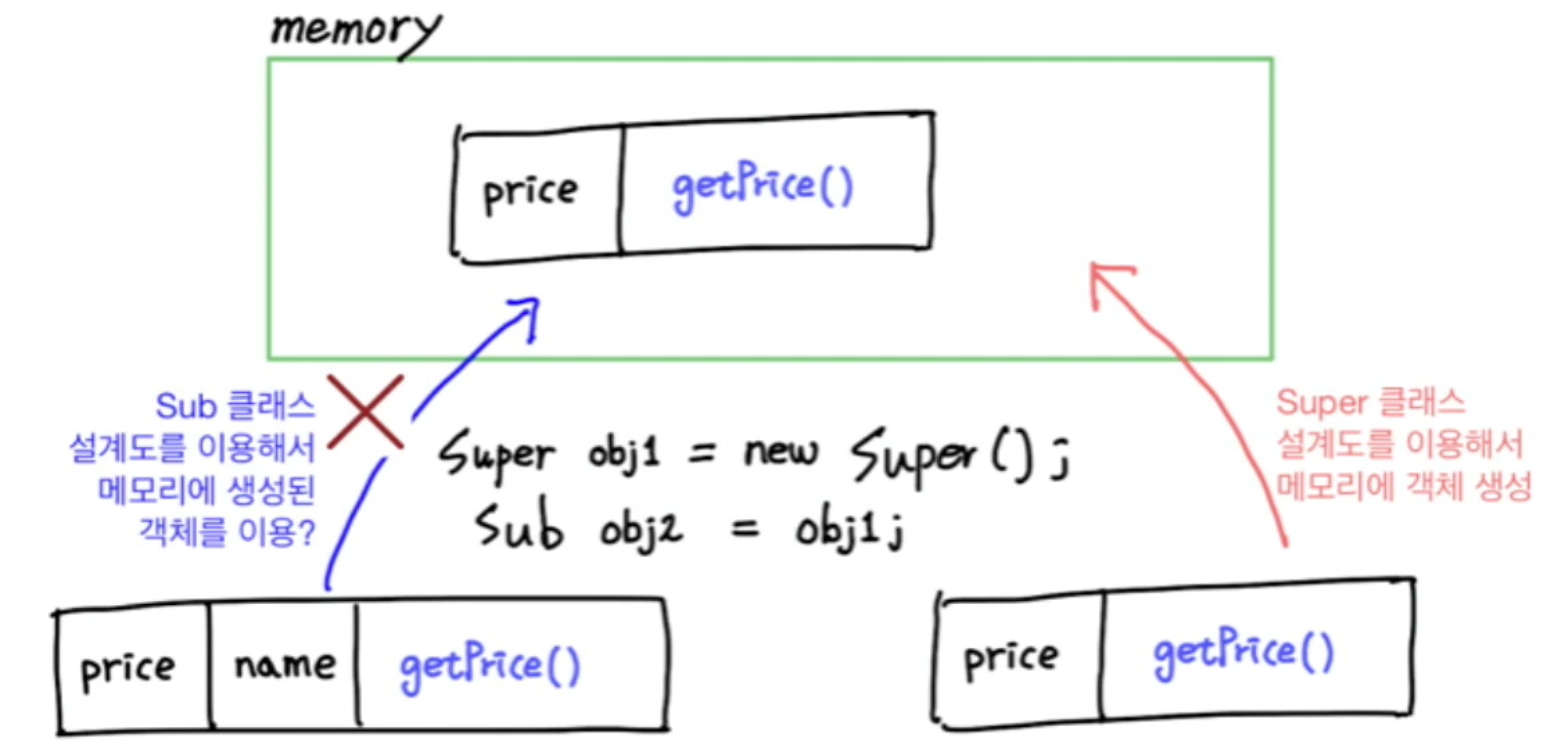 memory
price getPrice()
Sub 클래스
설계도를 이용해서
메모리에 생성된
객체를 이용?
Super obj1 = new Super();
Sub obj2 = obj1;
Super 클래스
설계도를 이용해서
메모리에 객체 생성
price name getPrice()
price getPrice()